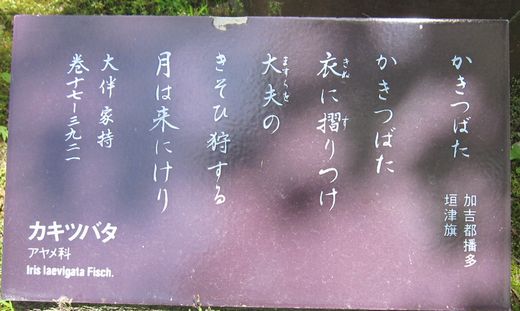 かきつばた
加吉都播多
垣津旗
かきつばた
衣に摺りつけ
きぬ
す
大夫の
ますらを
きそひ狩する
月は来にけり
大伴家持
巻十七ー三九二一
カキツバタ
アヤメ科
Iris laevigata Fisch.